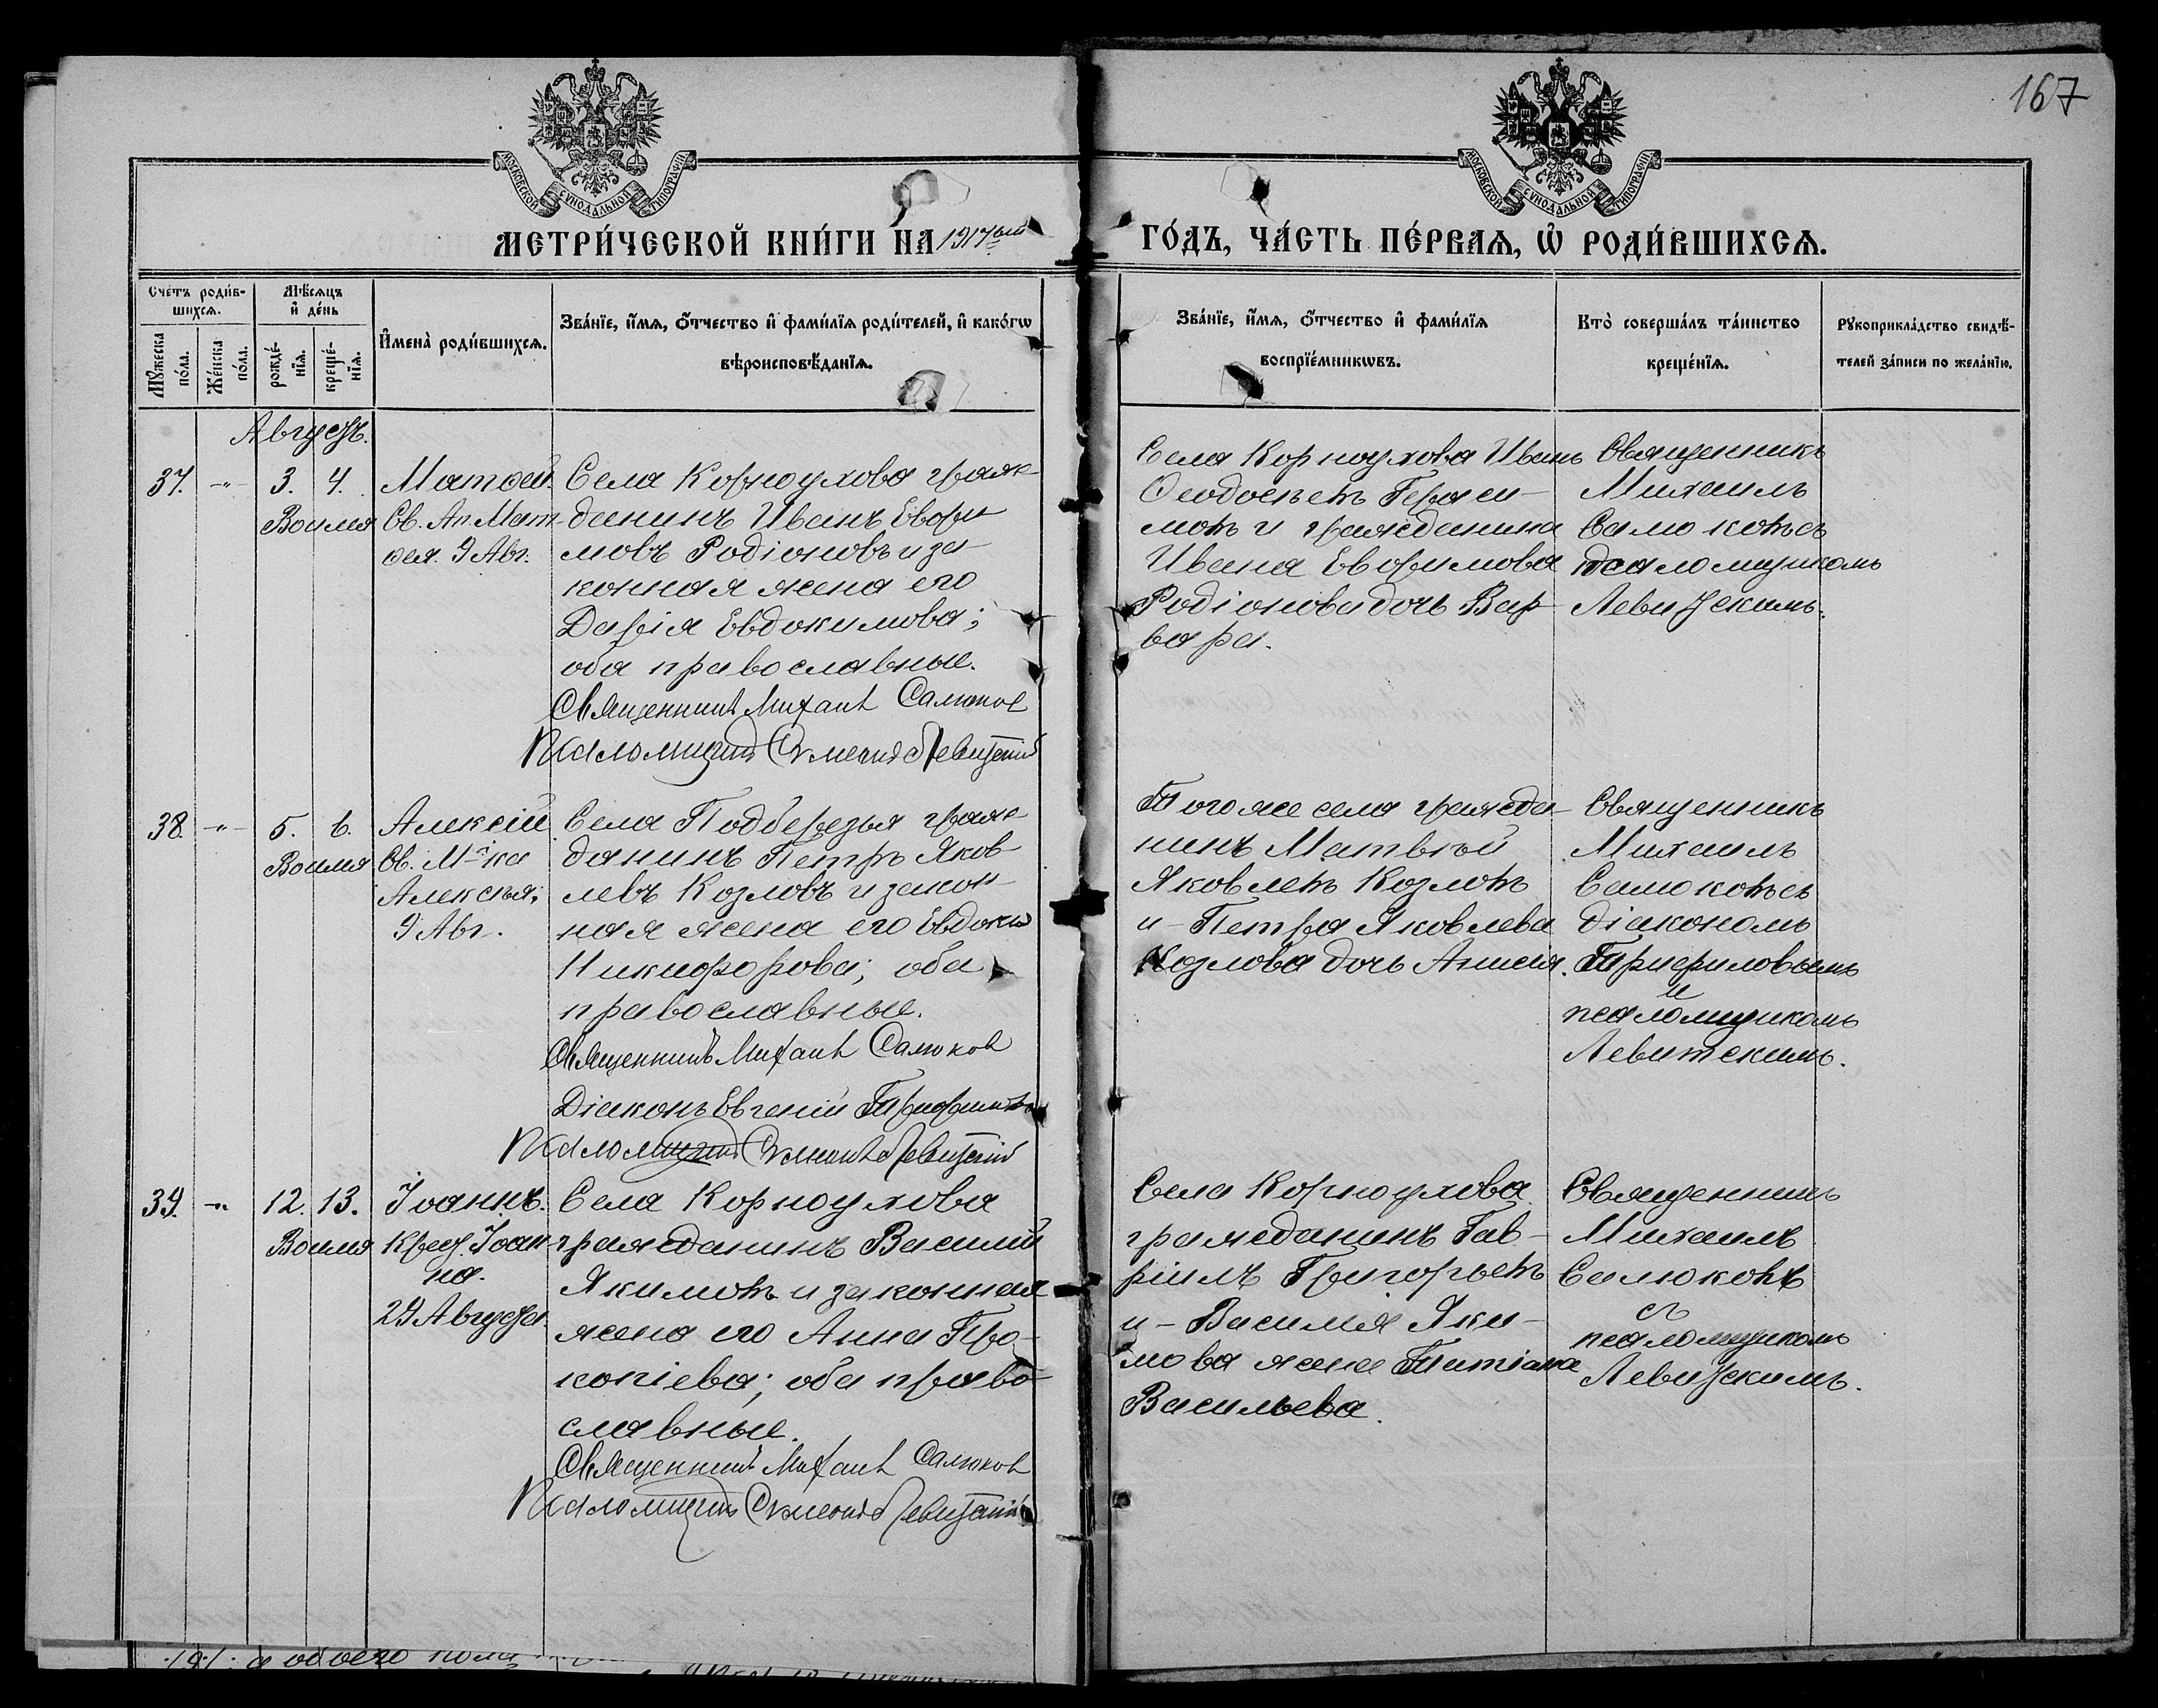 167
МОСКОВСКОЙ СѴНОДАЛЬНОЙ ТИПОГРАФІИ
МОСКОВСКОЙ СѴНОДАЛЬНОЙ ТИПОГРАФІИ
МЕТРИ́ЧЕСКОЙ КНИ́ГИ НА 1917ый
ГО́ДЪ, ЧА́СТЬ ПЕ́РВАѦ, Ѽ РОДИ́ВШИХСѦ.
Сче́тъ роди́в-
шихсѧ.
Мѣ́сѧцъ
и҆ де́нь
Мꙋ́жеска
по́ла.
Же́нска
по́ла.
рожде́-
нїѧ.
креще́-
нїѧ.
И҆мена̀ роди́вшихсѧ.
Зва́нїе, и҆́мѧ, ѻ҆́тчество и҆ фами́лїѧ роди́телей, и҆ како́гѡ
вѣроисповѣ́данїѧ.
Зва́нїе, и҆́мѧ, ѻ҆́тчество и҆ фами́лїѧ
воспрїе́мникѡвъ.
Кто̀ соверша́лъ та́инство
креще́нїѧ.
Рꙋкоприкла́дство свидѣ́-
телей за́писи по жела́нїю.
Августъ.
37. -"- 3. 4.
Во имя
Матѳей.
Св. Ап. Мат-
ѳея. 9 Авг.
Села Корноухова граж-
данинъ Иванъ Евѳи
мовъ Родіоновъ и за-
конная жена его
Дарія Евдокимова;
оба православные.
Священникъ Михаилъ Салюков
Псаломщикъ Сѵмеонъ Левитскій
Села Корноухова Иванъ
Ѳеодосьевъ Гераси-
мовъ и гражданина
Ивана Евѳимова
Родіонова дочь Вар-
вара.
Священникъ
Михаилъ
Салюковъ съ
псаломщикомъ
Левитскимъ.
38. -"- 5. 6.
Во имя
Алексій
Св. М-ка
Алексія;
9 Авг.
Села Подберезья граж-
данинъ Петръ Яков-
левъ Козловъ и закон-
ная жена его Евдокія
Никифорова; оба
православные.
Священникъ Михаилъ Салюков
Діаконъ Евгеній Трифиловъ
Псаломщикъ Сѵмеонъ Левитскій
Того же села гражда-
нинъ Матвѣй
Яковлевъ Козловъ
и - Петра Яковлева
Козлова дочь Анисія.
Священникъ
Михаилъ
Салюковъ съ
діакономъ
Трифиловымъ
и
псаломщикомъ
Левитскимъ.
39. -"- 12. 13.
Во имя
Іоаннъ.
Крест. Іоан-
на.
29 Августа
Села Корноухова
гражданинъ Василій
Якимовъ и законная
жена его Анна Про-
копіева; оба право-
славные.
Священникъ Михаилъ Салюков
Псаломщикъ Сѵмеонъ Левитскій
Села Корноухова
гражданинъ Гав-
ріилъ Григорьевъ
и - Василія Яки-
мова жена Татіана
Васильева.
Священникъ
Михаилъ
Салюковъ
съ
псаломщикомъ
Левитскимъ.
обоего пола